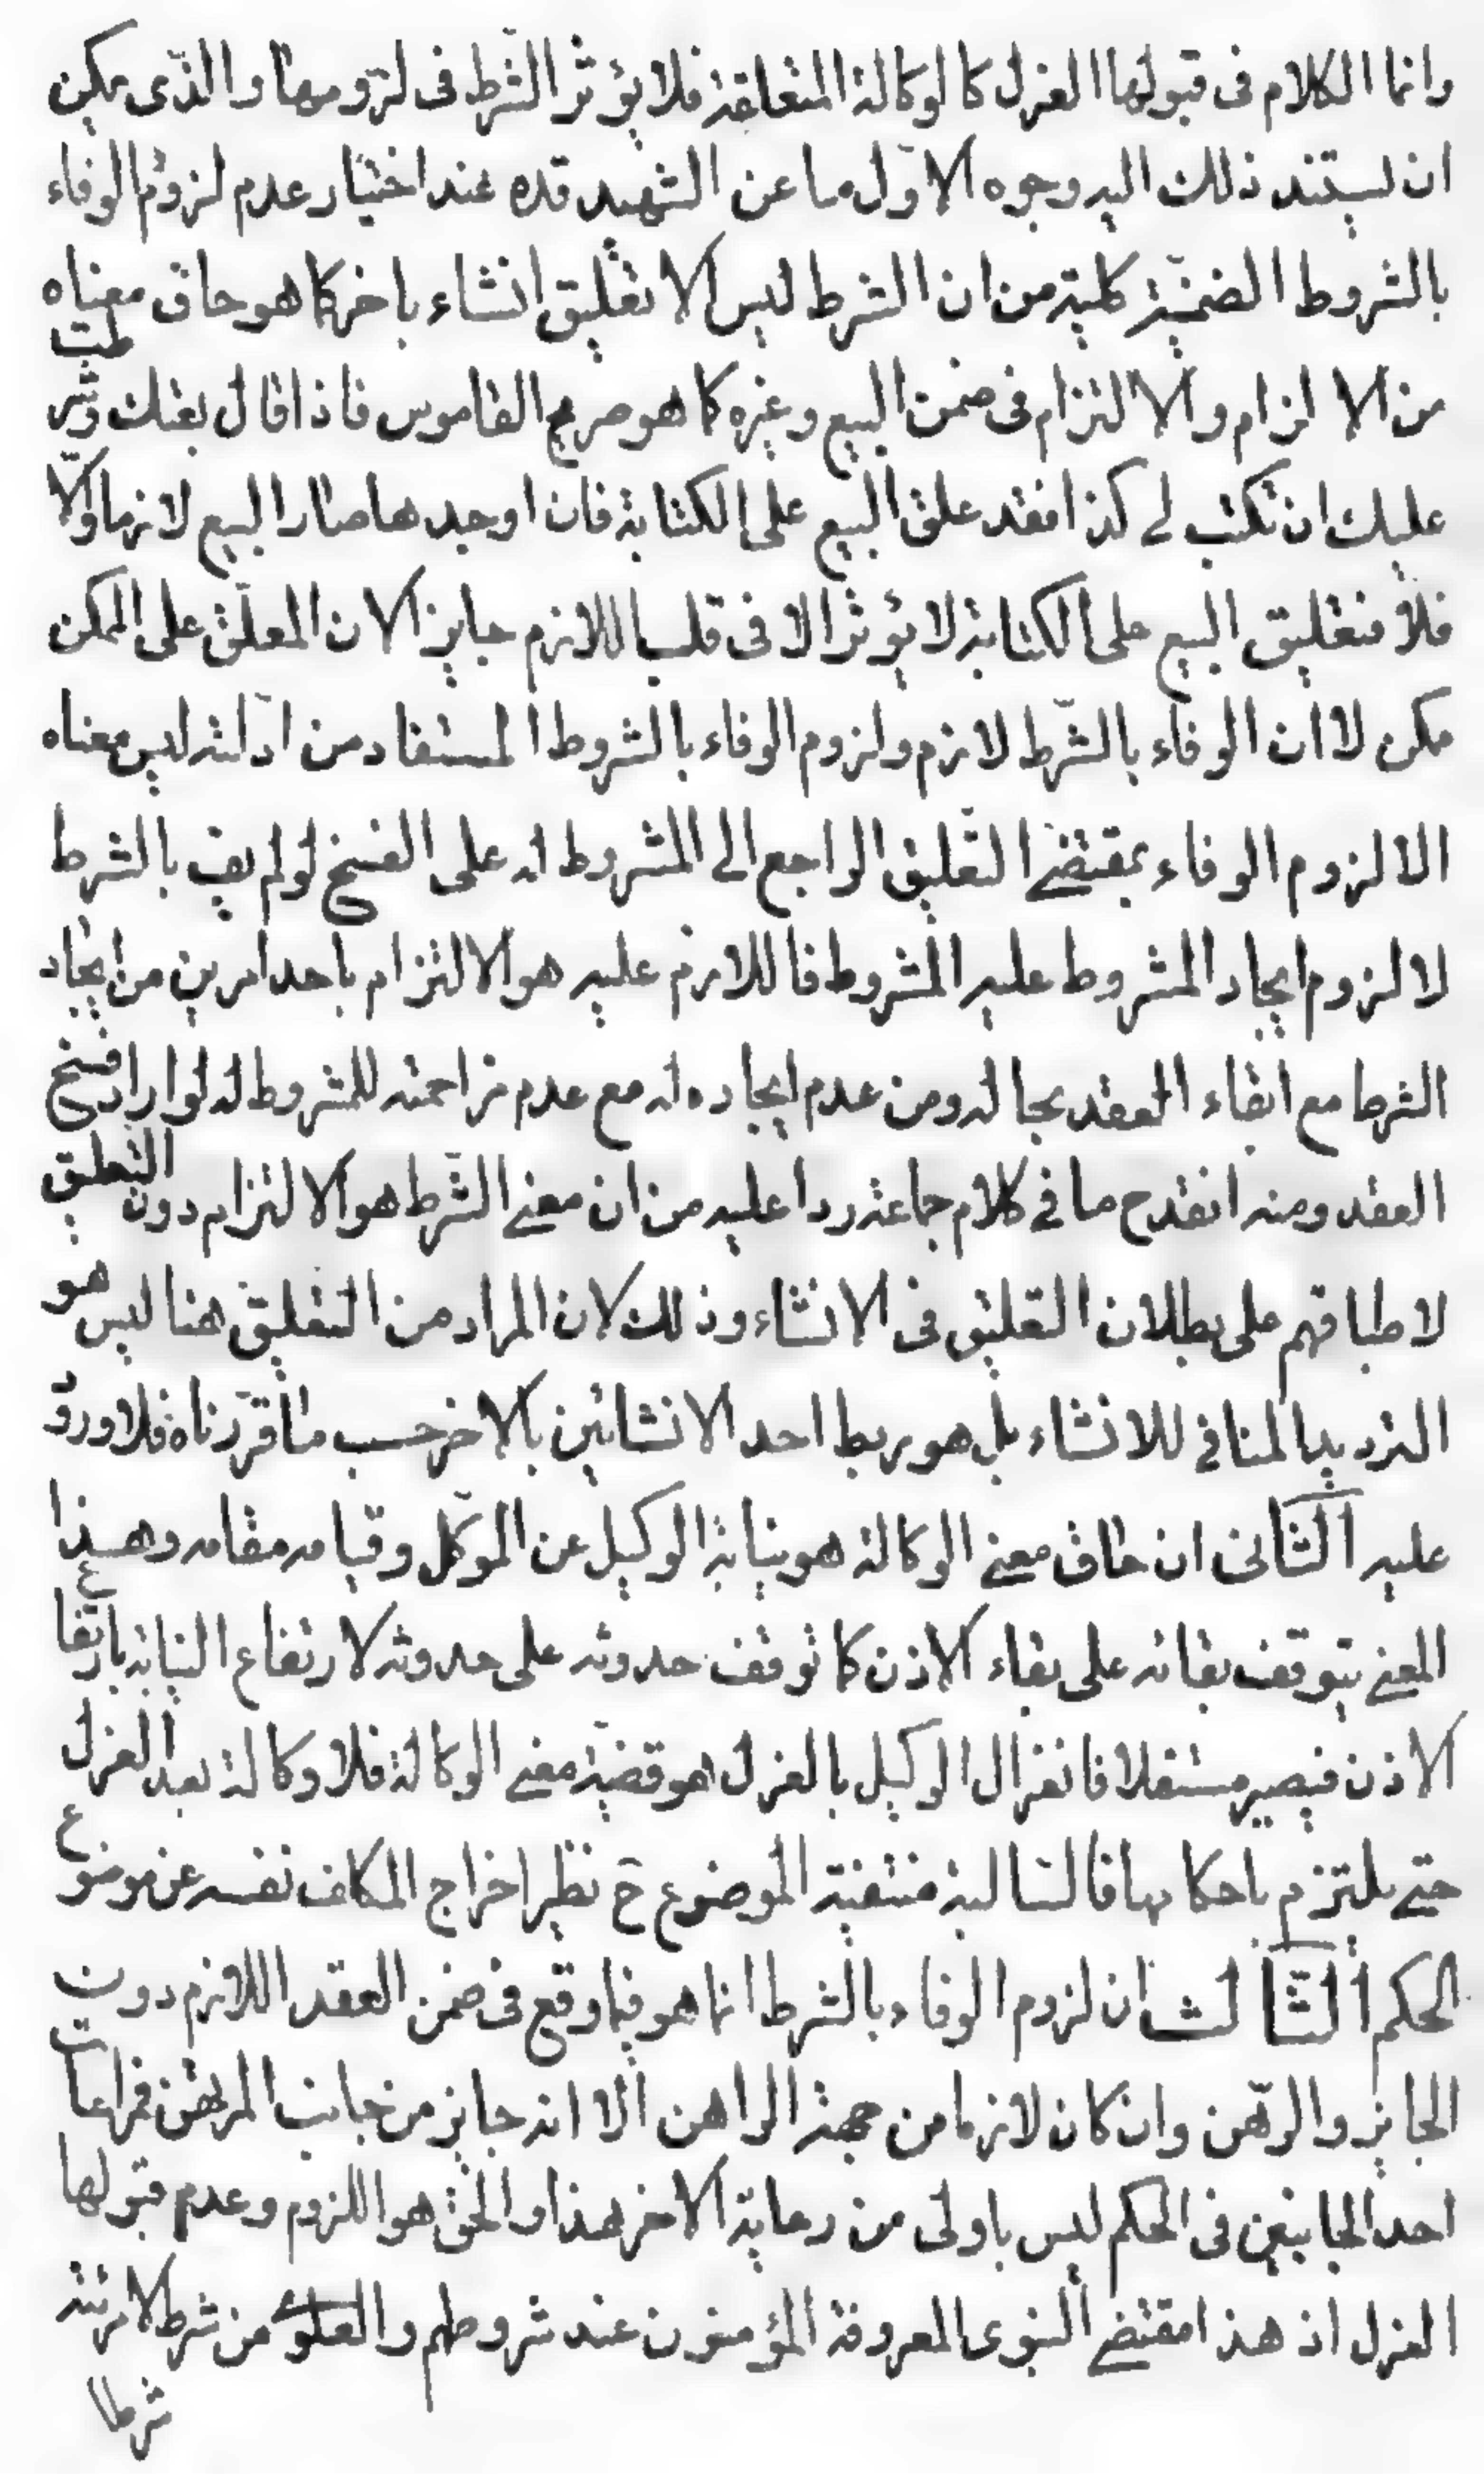 وانما الكلام فى قبولها العزل كالوكالة المتعاقبة فلا يؤثر الشرط فى لزومها والذى يمكن
ان يستند ذلك اليه وجوه الاول ما عن الشهيد قده عند اختيار عدم لزوم الوفاء
بالشروط الضمنية كلية من ان الشرط ليس الا تعليق انشاء باخر كما هو حاق معناه
من الالزام والالتزام فى ضمن البيع وغيره كما هو صريح القاموس فاذا قال بعتك وشرطت
عليك ان تكتب لى كذا فقد علق البيع على الكتابة فان اوجدها صار البيع لازما والا
فلا فتعليق البيع على الكتابة لا يؤثر الا فى قلب اللازم جايزا لان المعلق على الممكن
ممكن لا ان الوفاء بالشرط لازم ولزوم الوفاء بالشروط المستفاد من ادلته ليس معناه
الا لزوم الوفاء بمقتضى التعليق الراجع الى المشروط له على الفسخ لو لم يف بالشرط
لا لزوم ايجاد المشروط عليه المشروط فاللازم عليه هو الالتزام باحد امرين من ايجاد
الشرط مع ابقاء العقد بحاله ومن عدم ايجاده له مع عدم مزاحمته للمشروط له لو اراد فسخ
العقد ومنه انقدح ما فى كلام جماعة ردا عليه من ان معنى الشرط هو الالتزام دون التعليق
لاطباقهم على بطلان التعليق فى الانشاء وذلك لان المراد من التعليق هنا ليس هو
الترديد المنافى للانشاء بل هو ربط احد الانشائين بالاخر حسب ما قررناه فلا ورود
عليه الثانى ان حاق معنى الوكالة هو نيابة الوكيل عن الموكل وقيامه مقامه وهذا
المعنى يتوقف بقائه على بقاء الاذن كما توقف حدوثه على حدوثه لارتفاع النيابة بارتفاع
الاذن فيصير مستقلا فانعزال الوكيل بالعزل هو قضية معنى الوكالة فلا وكالة بعد العزل
حتى يلتزم باحكامها فالسالبة منتفية الموضوع ح نظير اخراج المكلف نفسه عن موضوع
الحكم الثالث ان لزوم الوفاء بالشرط انما هو فيما وقع فى ضمن العقد اللازم دون
الجايز والرهن وان كان لازما من جهة الراهن الا انه جايز من جانب المرتهن فمراعات
احد الجانبين فى الحكم ليس باولى من رعاية الاخر هذا والحق هو اللزوم وعدم قبولها
العزل اذ هذا مقتضى النبوى المعروفة المؤمنون عند شروطهم والعلوى من شرط لامرئته
شرطا